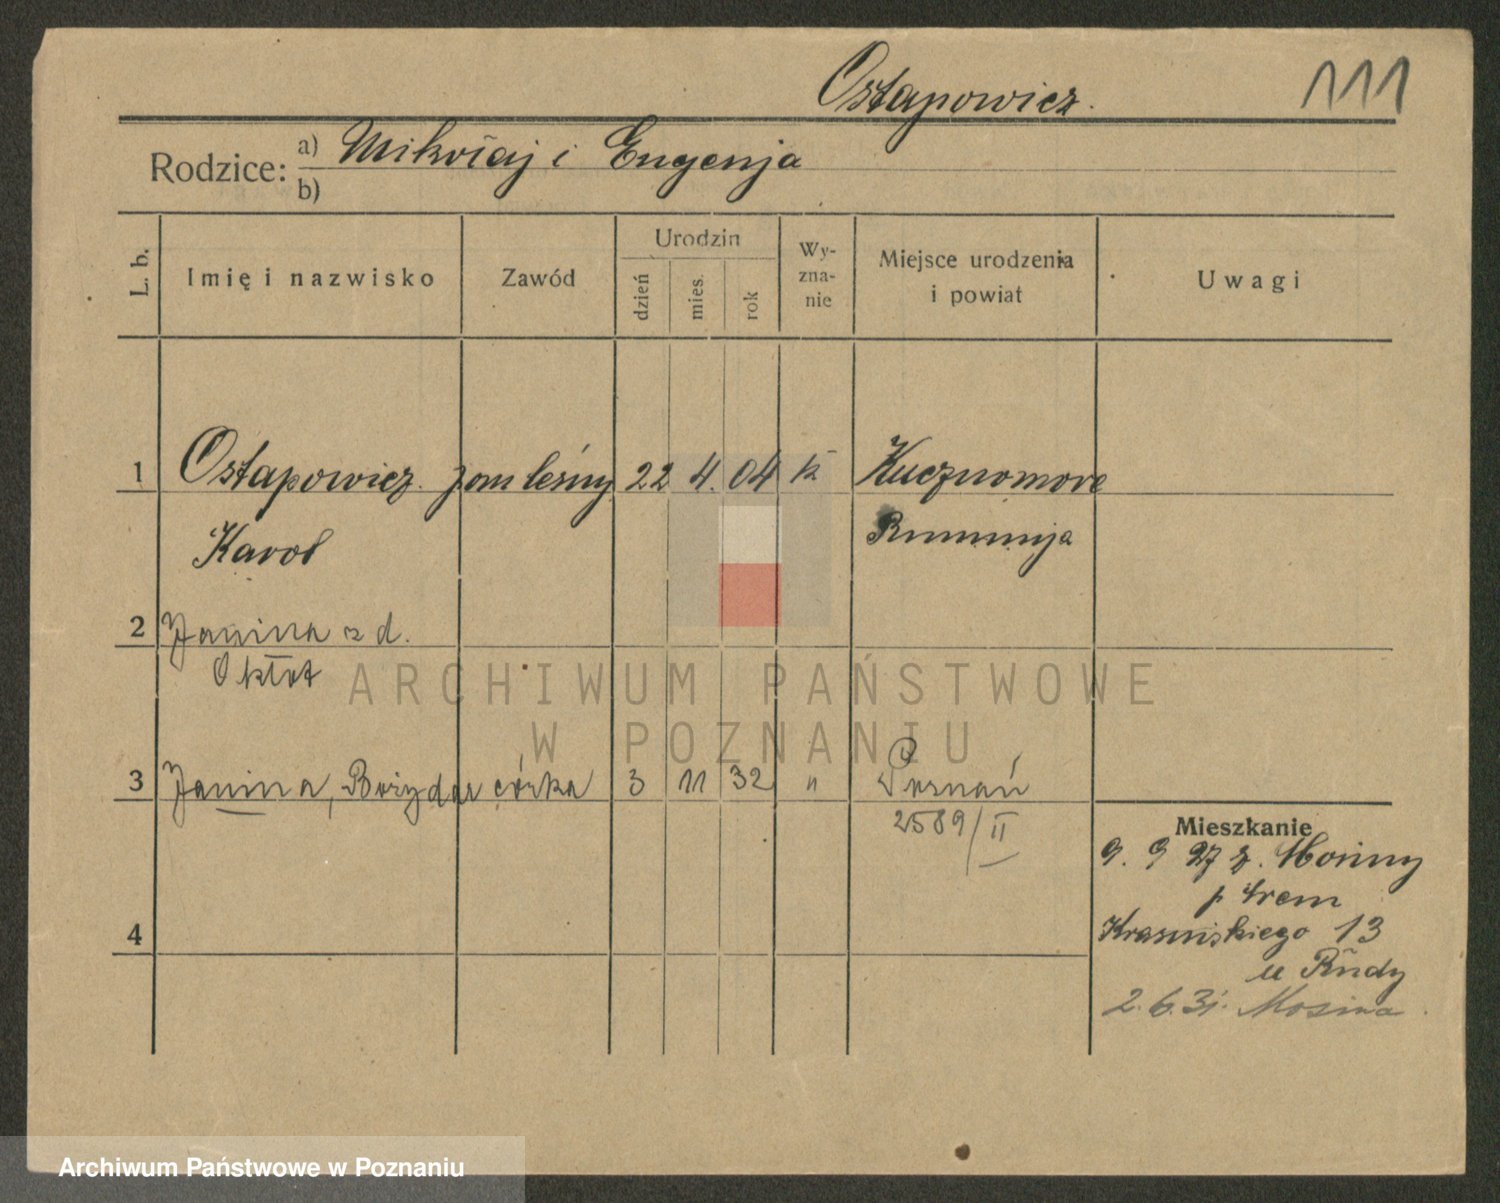 Ostapowicz. 111
Rodzice: a) Mikołaj i Eugenja
b)
L. b. Imię i nazwisko Zawód Urodzin dzień mies. rok Wy-zna-nie Miejsce urodzenia i powiat Uwagi
1 Ostapowicz leśny 22 4. 04 k
Karol Rumunija
2 Janina z d.
ARCHIWUM PAŃSTWOWE
W POZNANIU
3 Janina, córka 3 11 32 " Poznań
2589/II
Mieszkanie
9. 9 27 z.
p Śrem
4 Krasińskiego 13
u Rudy
2.6.31. Mosina
Archiwum Państwowe w Poznaniu